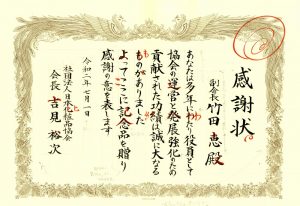 感謝状
副会長
竹田 恵 殿
あなたは多年にわたり役員として
協会の運営と発展強化のため
貢献された功績は誠に大なる
ものがありました
よってここに記念品を贈り
感謝の意を表します
令和二年七月一日
社団法人日本化粧品協会
会長 吉見 裕次